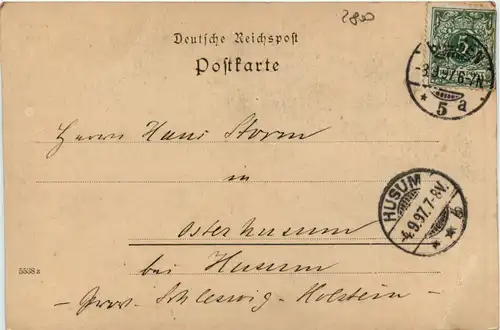 2800
Deutsche Reichspost
Postkarte
5
3.9.97.6-7N
* 5 a
Herrn Hans Storm
in
Osterhusum
bei Husum
- Prov. Schleswig-Holstein -
HUSUM
4.9.97.7-8V.
* * b
5538 a